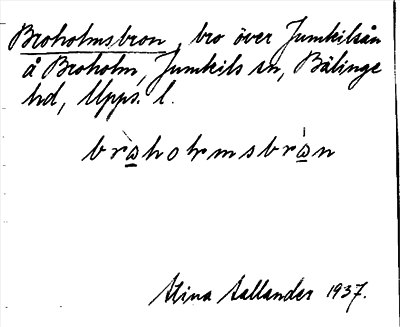 Broholmsbron, bro över Jumkilsån
å Broholm, Jumkils sn, Bälinge
hd, Upps. l.
bràholmsbràn
Stina Sallander 1937.